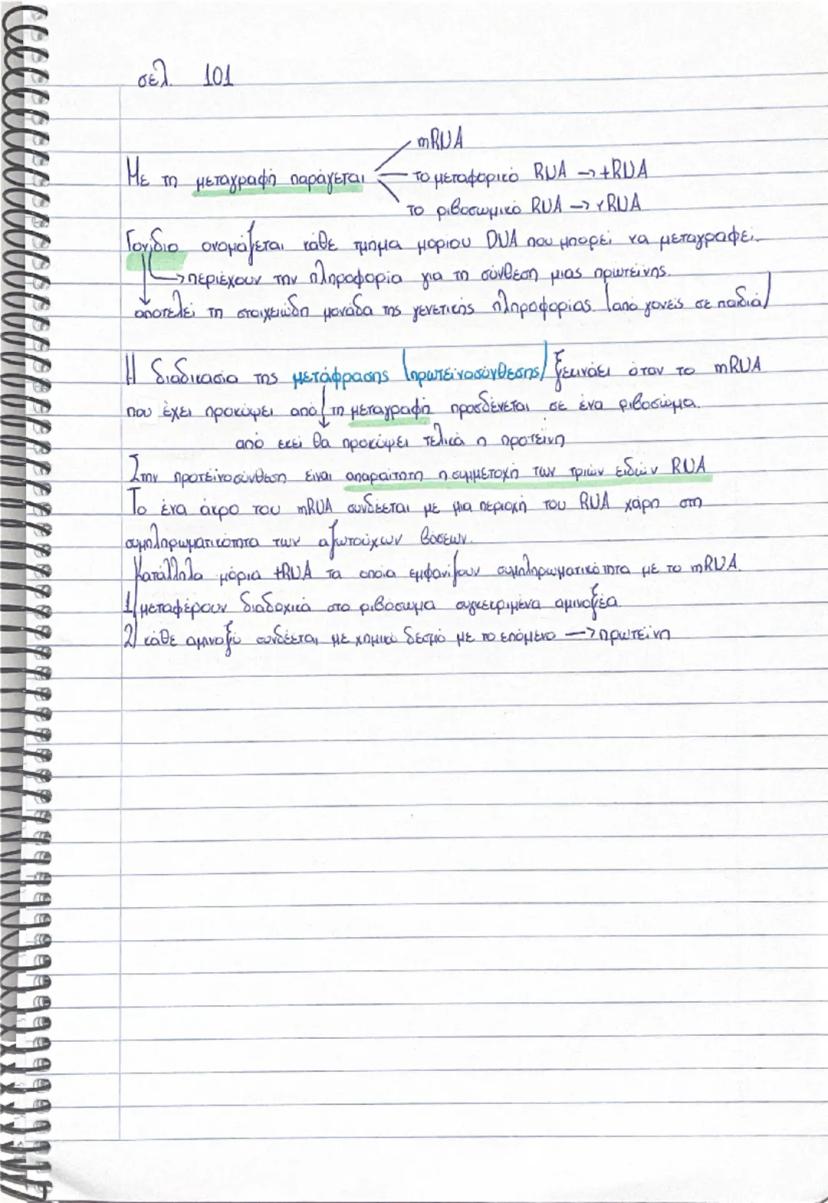 σελ 101
mRNA
Με τη μεταγραφή παράγεται → το μεταφορικό RNA → tRNA
το ριβοσωμικό RNA → rRNA
Γονίδιο ονομάζεται κάθε τμήμα μορίου DNA που μπορεί να μεταγραφεί.
→ περιέχουν την πληροφορία για τη σύνθεση μιας πρωτεΐνης.
αποτελεί τη στοιχειώδη μονάδα της γενετικής πληροφορίας (από γονείς σε παιδιά)
Η διαδικασία της μετάφρασης (πρωτεϊνοσύνθεσης) ξεκινάει όταν το mRNA
που έχει προκύψει από τη μεταγραφή προσδένεται σε ένα ριβόσωμα.
από εκεί θα προκύψει τελικά η προτεΐνη
Στην προτεϊνοσύνθεση είναι απαραίτητη η συμμετοχή των τριών ειδών RNA
Το ένα άκρο του mRNA συνδέεται με μια περιοχή του RNA χάρη στη
συμπληρωματικότητα των αζωτούχων βάσεων.
Κατάλληλα μόρια tRNA τα οποία εμφανίζουν συμπληρωματικότητα με το mRNA.
1) μεταφέρουν διαδοχικά στο ριβόσωμα συγκεκριμένα αμινοξέα
2) κάθε αμινοξύ συνδέεται με χημικό δεσμό με το επόμενο → πρωτεΐνη